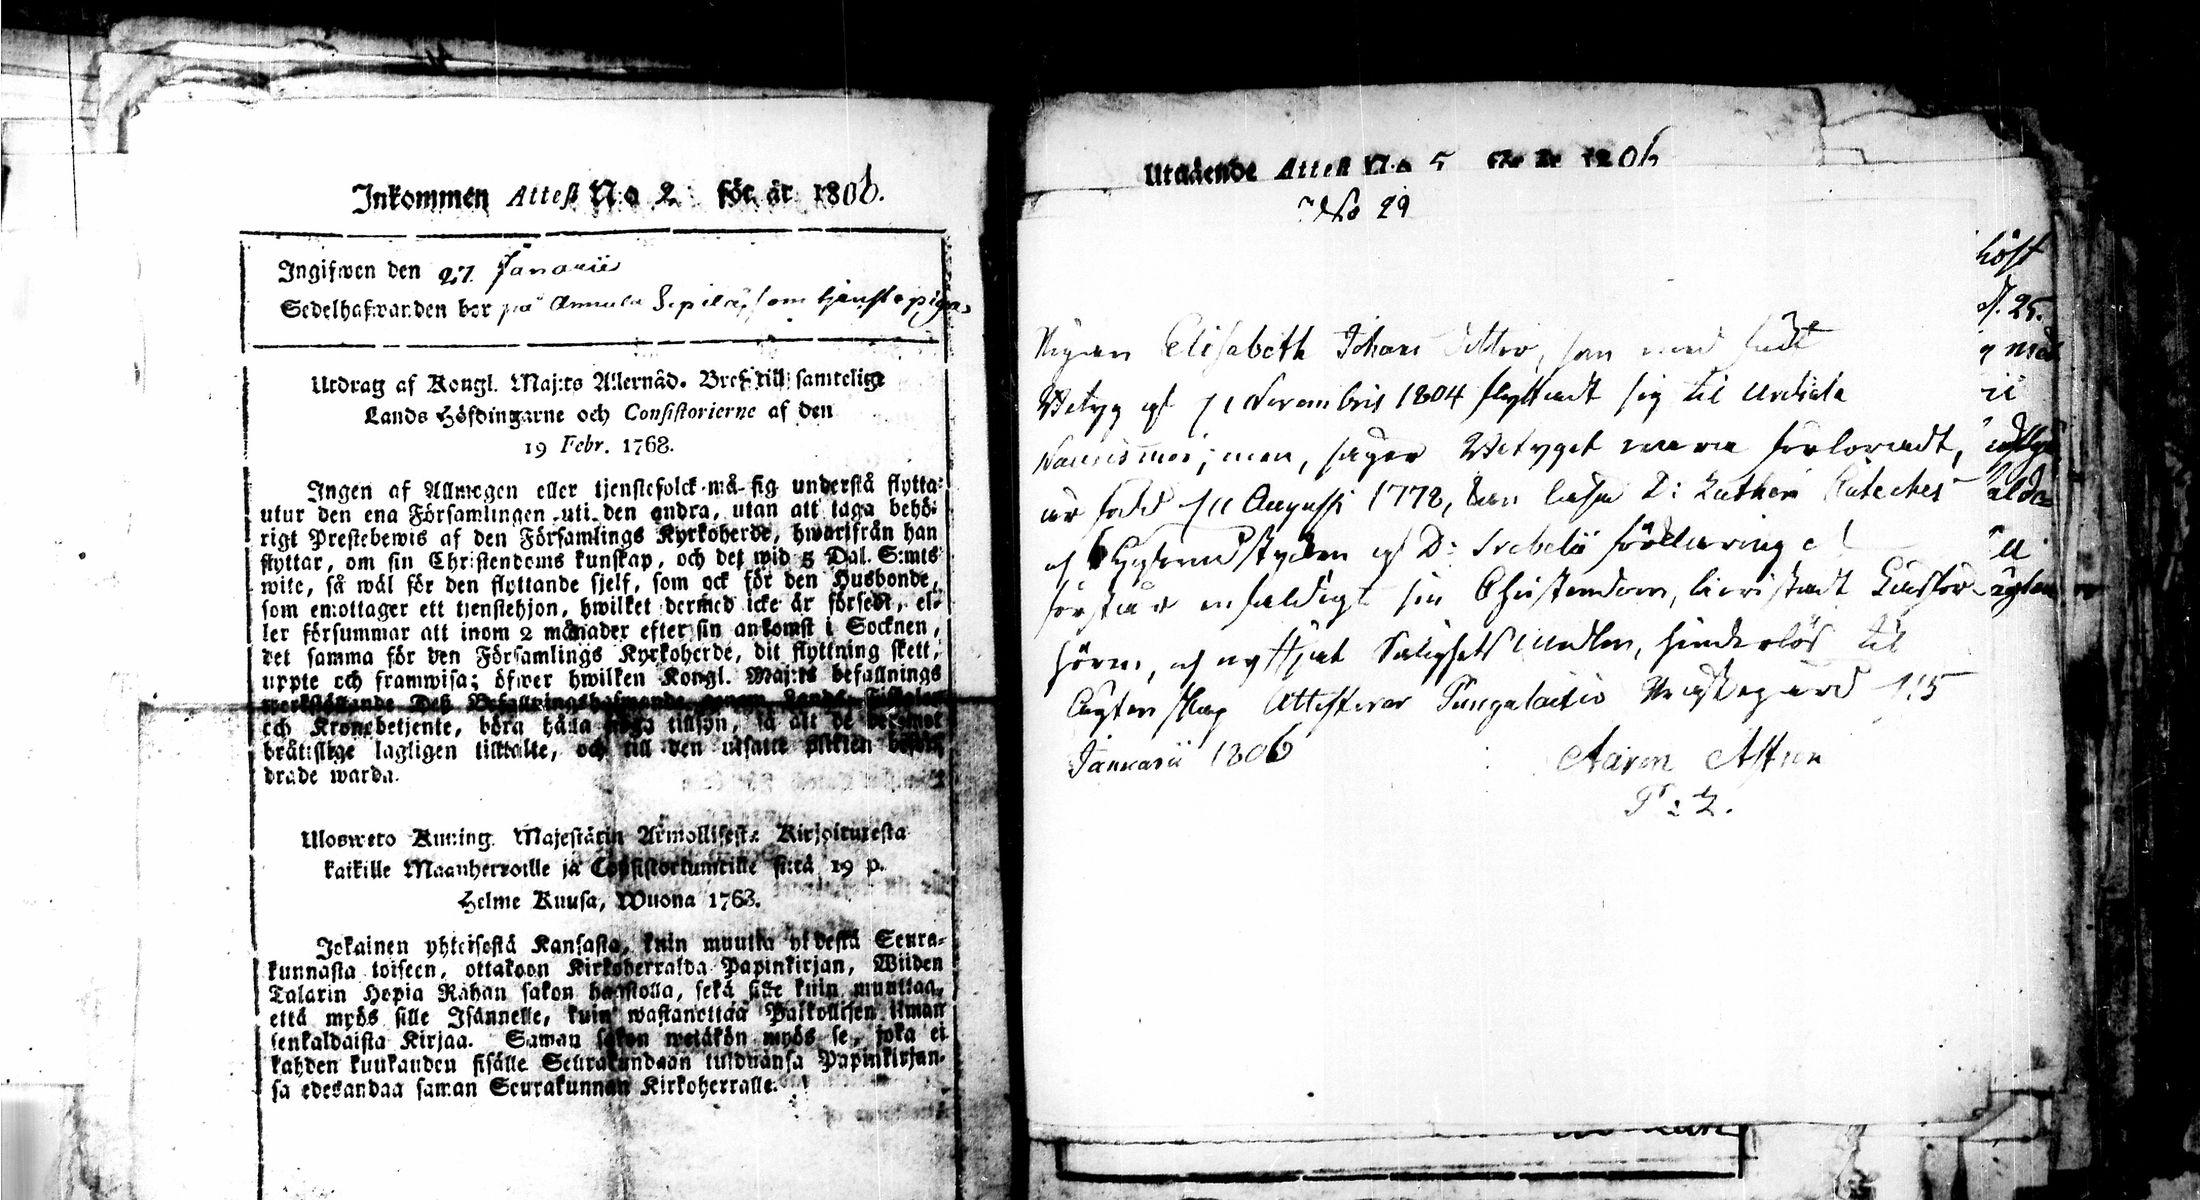 Inkommen Attest N:o 2 för år 1806.
Ingifwen den 27 Januarii
Sedelhafwanden bor på Annula Sepilä, som tjenstepiga
Utdrag af Kongl. Maj:ts Allernåd. Bref till samtelige
Lands Höfdingarne och Consistorierne af den
19 Febr. 1768.
Ingen af Allmogen eller tjenstefolck må sig understå flytta
utur den ena Församlingen uti den andra, utan att taga behö-
rigt Prestebewis af den Församlings Kyrkoherde, hwarifrån han
flyttar, om sin Christendoms kunskap, och det wid 5 Dal. S:mts
wite, så wäl för den flyttande sjelf, som ock för den Husbonde,
som emottager ett tjenstehjon, hwilket dermed icke är försedt, el-
ler försummar att inom 2 månader efter sin ankomst i Socknen,
det samma för den Församlings Kyrkoherde, dit flyttning skett,
uppte och framwisa; öfwer hwilken Kongl. Maj:ts befallnings
werkställande Deß Befallningshafwande, genom Lands Fiskaler
och Kronobetjente, böra hålla noga tillsyn, så att de
brätslige lagligen tilltalte, och till den utsatte plikten beför-
drade warda.
Uloswето Kuning. Majestätin Armollisesta Kirjoituxesta
kaikille Maanherroille ja Consistoriumeille siitä 19 p.
Helme Kuusa, Wuona 1768.
Jokainen yhteisestä Kansasta, kuin muutta yhdestä Seura-
kunnasta toiseen, ottakoon Kirkoherralda Papinkirjan, Wiiden
Talarin Hopia Rahan sakon haastolla, sekä sille kuin muuttaa,
että myös sille Isännelle, kuin wastanottaa Palkollisen ilman
senkaldaista Kirjaa. Saman sakon wetäkön myös se, joka ei
kahden kuukauden sisälle Seurakundaan tulduansa Papinkirjan-
sa edeskandaa saman Seurakunnan Kirkoherralle.
Utgående Attest N:o 5 för år 1806
No 29
Pigan Elisabeth Johans Dotter, som med
Betyg af 11 Novembris 1804 flyttadt sig til Urdiala
men, säger Betyget vara förloradt,
är född 11 Augusti 1778, kan läsa D: Lutheri Cateches
af D: Svebelii förklaring
förstår enfaldigt sin Christendom, bevistadt Läsför-
hören, och nyttjat Salighets Medlen, hinderlös til
Ägtenskap Attesterar Pungalaitio Prästegård 15
Januarii 1806
Aaron
höst
d. 25.